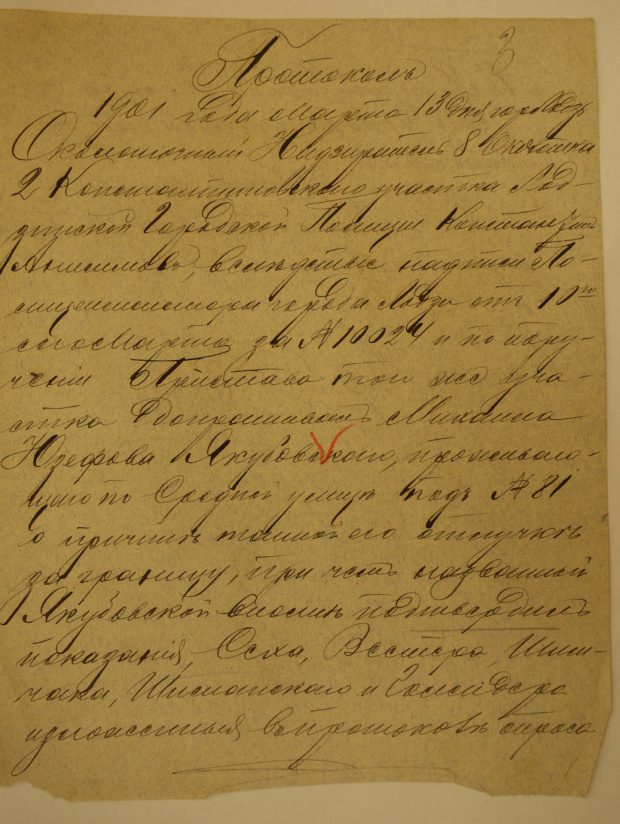 3
Протоколъ
1901 года Марта 13 дня город Лодзь
Околоточный Надзиратель 8 Околотка
2 Константиновского участка Лод-
зинской Городской Полиции Константинъ
Анисимовъ, вследствіе надписи По-
лицеймейстера города Лодзи отъ 10го
сего Марта за № 10024 и по пору-
ченію Пристава того же уча-
стка допрашивалъ Михаила
Юзефова Якубовского, проживаю-
щего по Средней улице подъ № 81
о причинѣ тайной его отлучкѣ
за границу, при чемъ названный
Якубовской вполнѣ подтвердилъ
показанія, Осха, Вестера, Шим-
чака, Шиманского и
изложенныя въ протоколѣ опроса